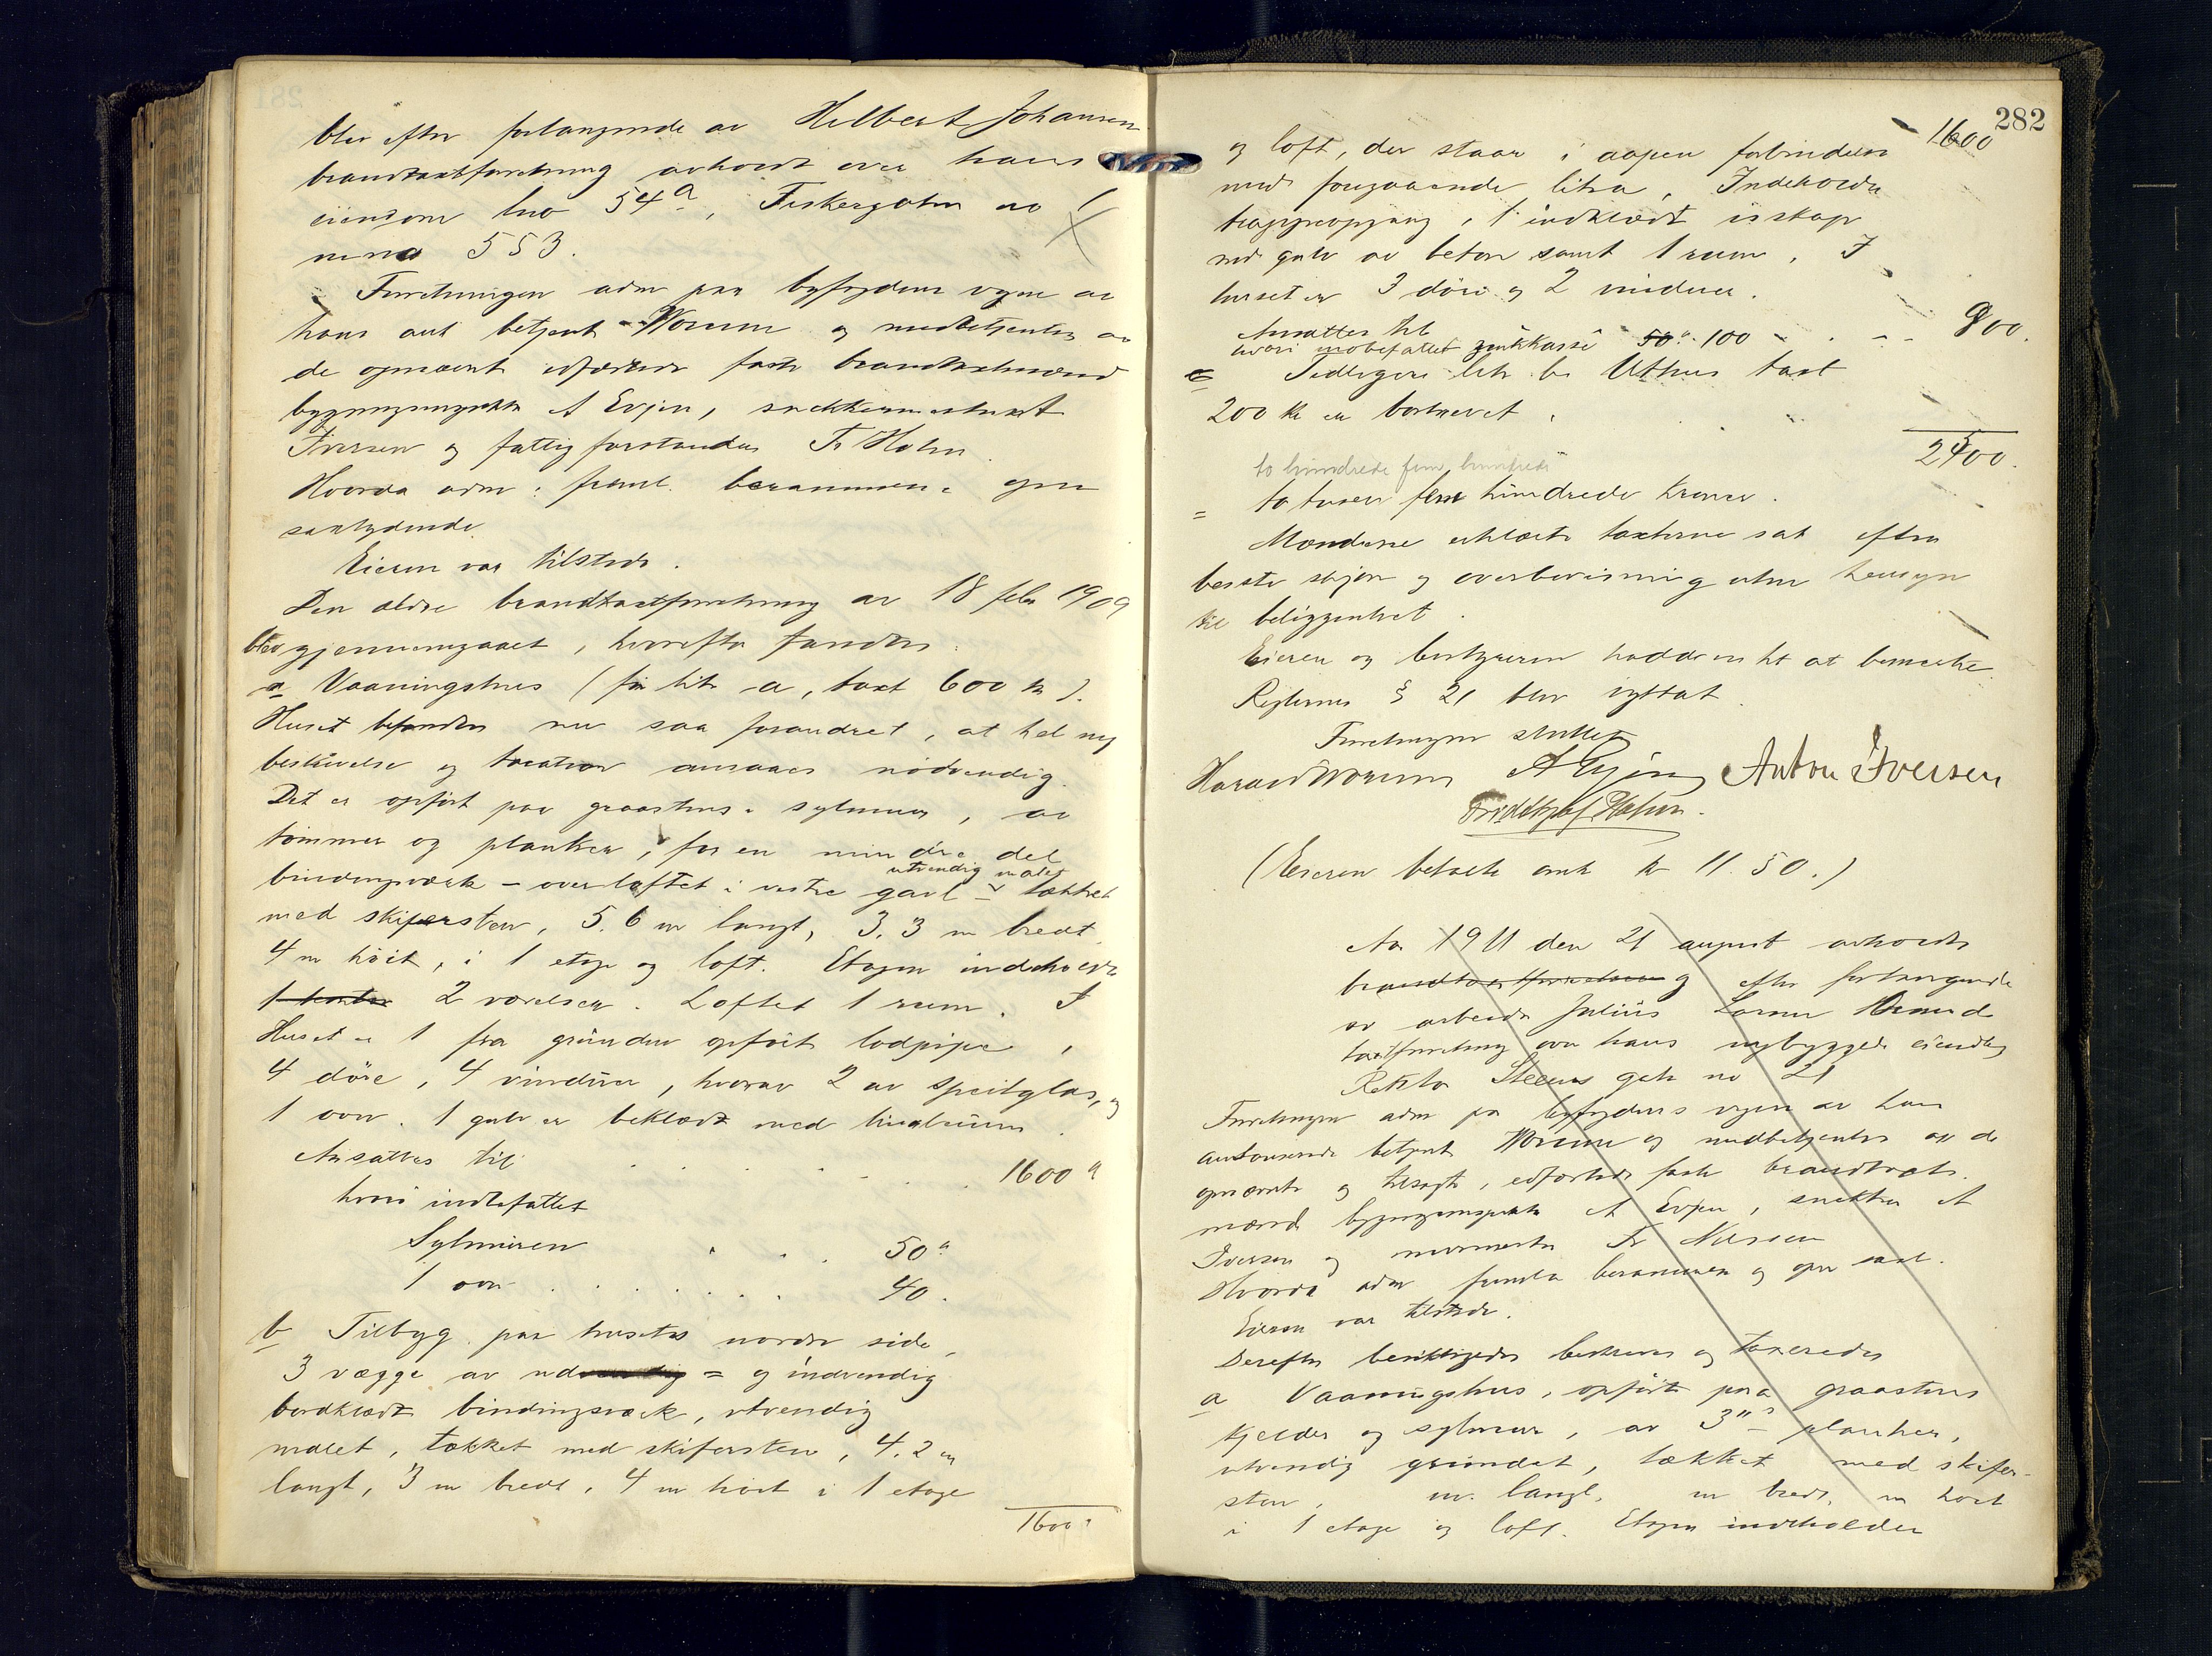 blev efter forlangende av Helbert Johansen
brandtaxtforretning avholdt over hans
eiendom lno 54a, Fiskergaten av
mno 553.
Forretningen adm paa byfogdens vegne av
hans aut betjent Worum og medbetjentes av
de opnævnte edfæstede faste brandtaxtmænd
bygningsinspektør A Evjen, snekkermester A
Iversen og fattigforstander Fr Holm.
Hvorda adm: freml. berammen. opn
saalydende.
Eieren var tilstede.
Den ældre brandtaxtforretning av 18 febr 1909
blev gjennemgaaet, hvorefter fandtes:
a Vaaningshus (før litr a, taxt 600 kr).
Huset befandtes nu saa forandret, at hel ny
beskrivelse og taxation ansaaes nødvendig.
Det er opført paa graastens sylmur, av
tømmer og planker, for en mindre del
bindingsverk - over loftet i vestre gavl - utvendig malet tækket
med skifersten, 5.6 m langt, 3.3 m bredt
4 m høit, i 1 etage og loft. Etagen indeholder
2 værelser. Loftet 1 rum. I
Huset er 1 fra grunden opført lodpipe,
4 døre, 4 vinduer, hvorav 2 av speilglas, og
1 ovn. 1 gulv er beklædt med linoleum.
Ansættes til . . . . . . 1600"
hvori indbefattet
Sylmuren . . . 50"
1 ovn . . . . . . 40.
b Tilbyg. paa husets nordre side,
3 vægge av ud = og indvendig
bordklædt bindingsverk, utvendig
malet, tækket med skifersten, 4.2 m
langt, 3 m bredt, 4 m høit i 1 etage
1600"
282
1600
og loft, der staar i aapen forbindelse
med foregaaende litra, Indeholder
trappeopgang, 1 indklædt isskap
med gulv av beton samt 1 rum. I
huset er 3 døre og 2 vinduer.
Ansættes til . . . 900.
hvori indbefattet zinkkasse 50" 100
c Tidligere litr b. Uthus taxt
200 kr er bortrevet.
2500.
to hundrede fem hundrede
= to tusen fem hundrede kroner.
Mændene erklærte taxterne sat efter
bedste skjøn og overbevisning uten hensyn
til beliggenhet.
Eieren og bestyreren hadde intet at bemerke.
Reglernes § 21 blev iagttat.
Forretningen sluttet
Harald Worum A Evjen Anton Iversen
Fridthjof Holm.
(Eieren betalte omk kr 11.50.)
Aar 1911 den 21 august avholdtes
brandtaxtforretning efter forlangende
av arbeider Julius Larsen Brand
taxtforretning over hans nybyggede eiendom
Rektor Steens gate no 21
Forretningen adm paa byfogdens vegne av hans
autoriserede betjent Worum og medbetjentes av de
opnævnte og tilsagte, edfæstede faste brandtaxt-
mænd bygningsinspektør A Evjen, snekker A
Iversen og murmester Fr Nilssen
Hvorda adm fremla berammen og opn saal.
Eieren var tilstede.
Derefter besiktigedes beskreves og taxeredes
a Vaaningshus, opført paa graastens
kjelder og sylmur, av 3" planker,
utvendig grundet, tækket med skifer-
sten, m. langt, m bredt, m høit
i 1 etage og loft. Etagen indeholder